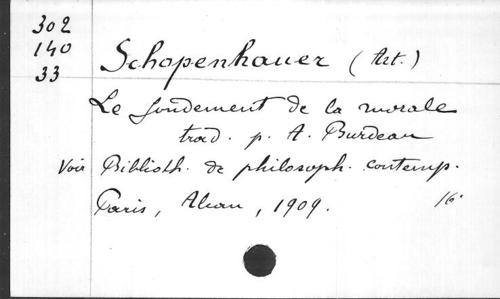 302
140
33
Schopenhauer (Art.)
Le fondement de la morale
trad. p. A. Burdeau
Voir Biblioth. de philosoph. contemp.
Paris, Alcan, 1909. 16°